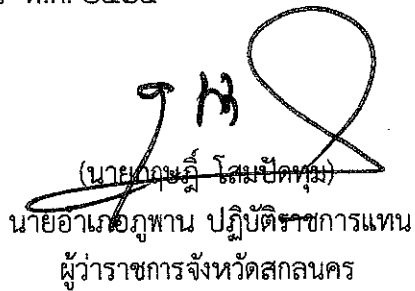 พ.ศ. ๒๕๖๕
(นายกฤษฎิ์ โสมปัดทุม)
นายอำเภอภูพาน ปฏิบัติราชการแทน
ผู้ว่าราชการจังหวัดสกลนคร